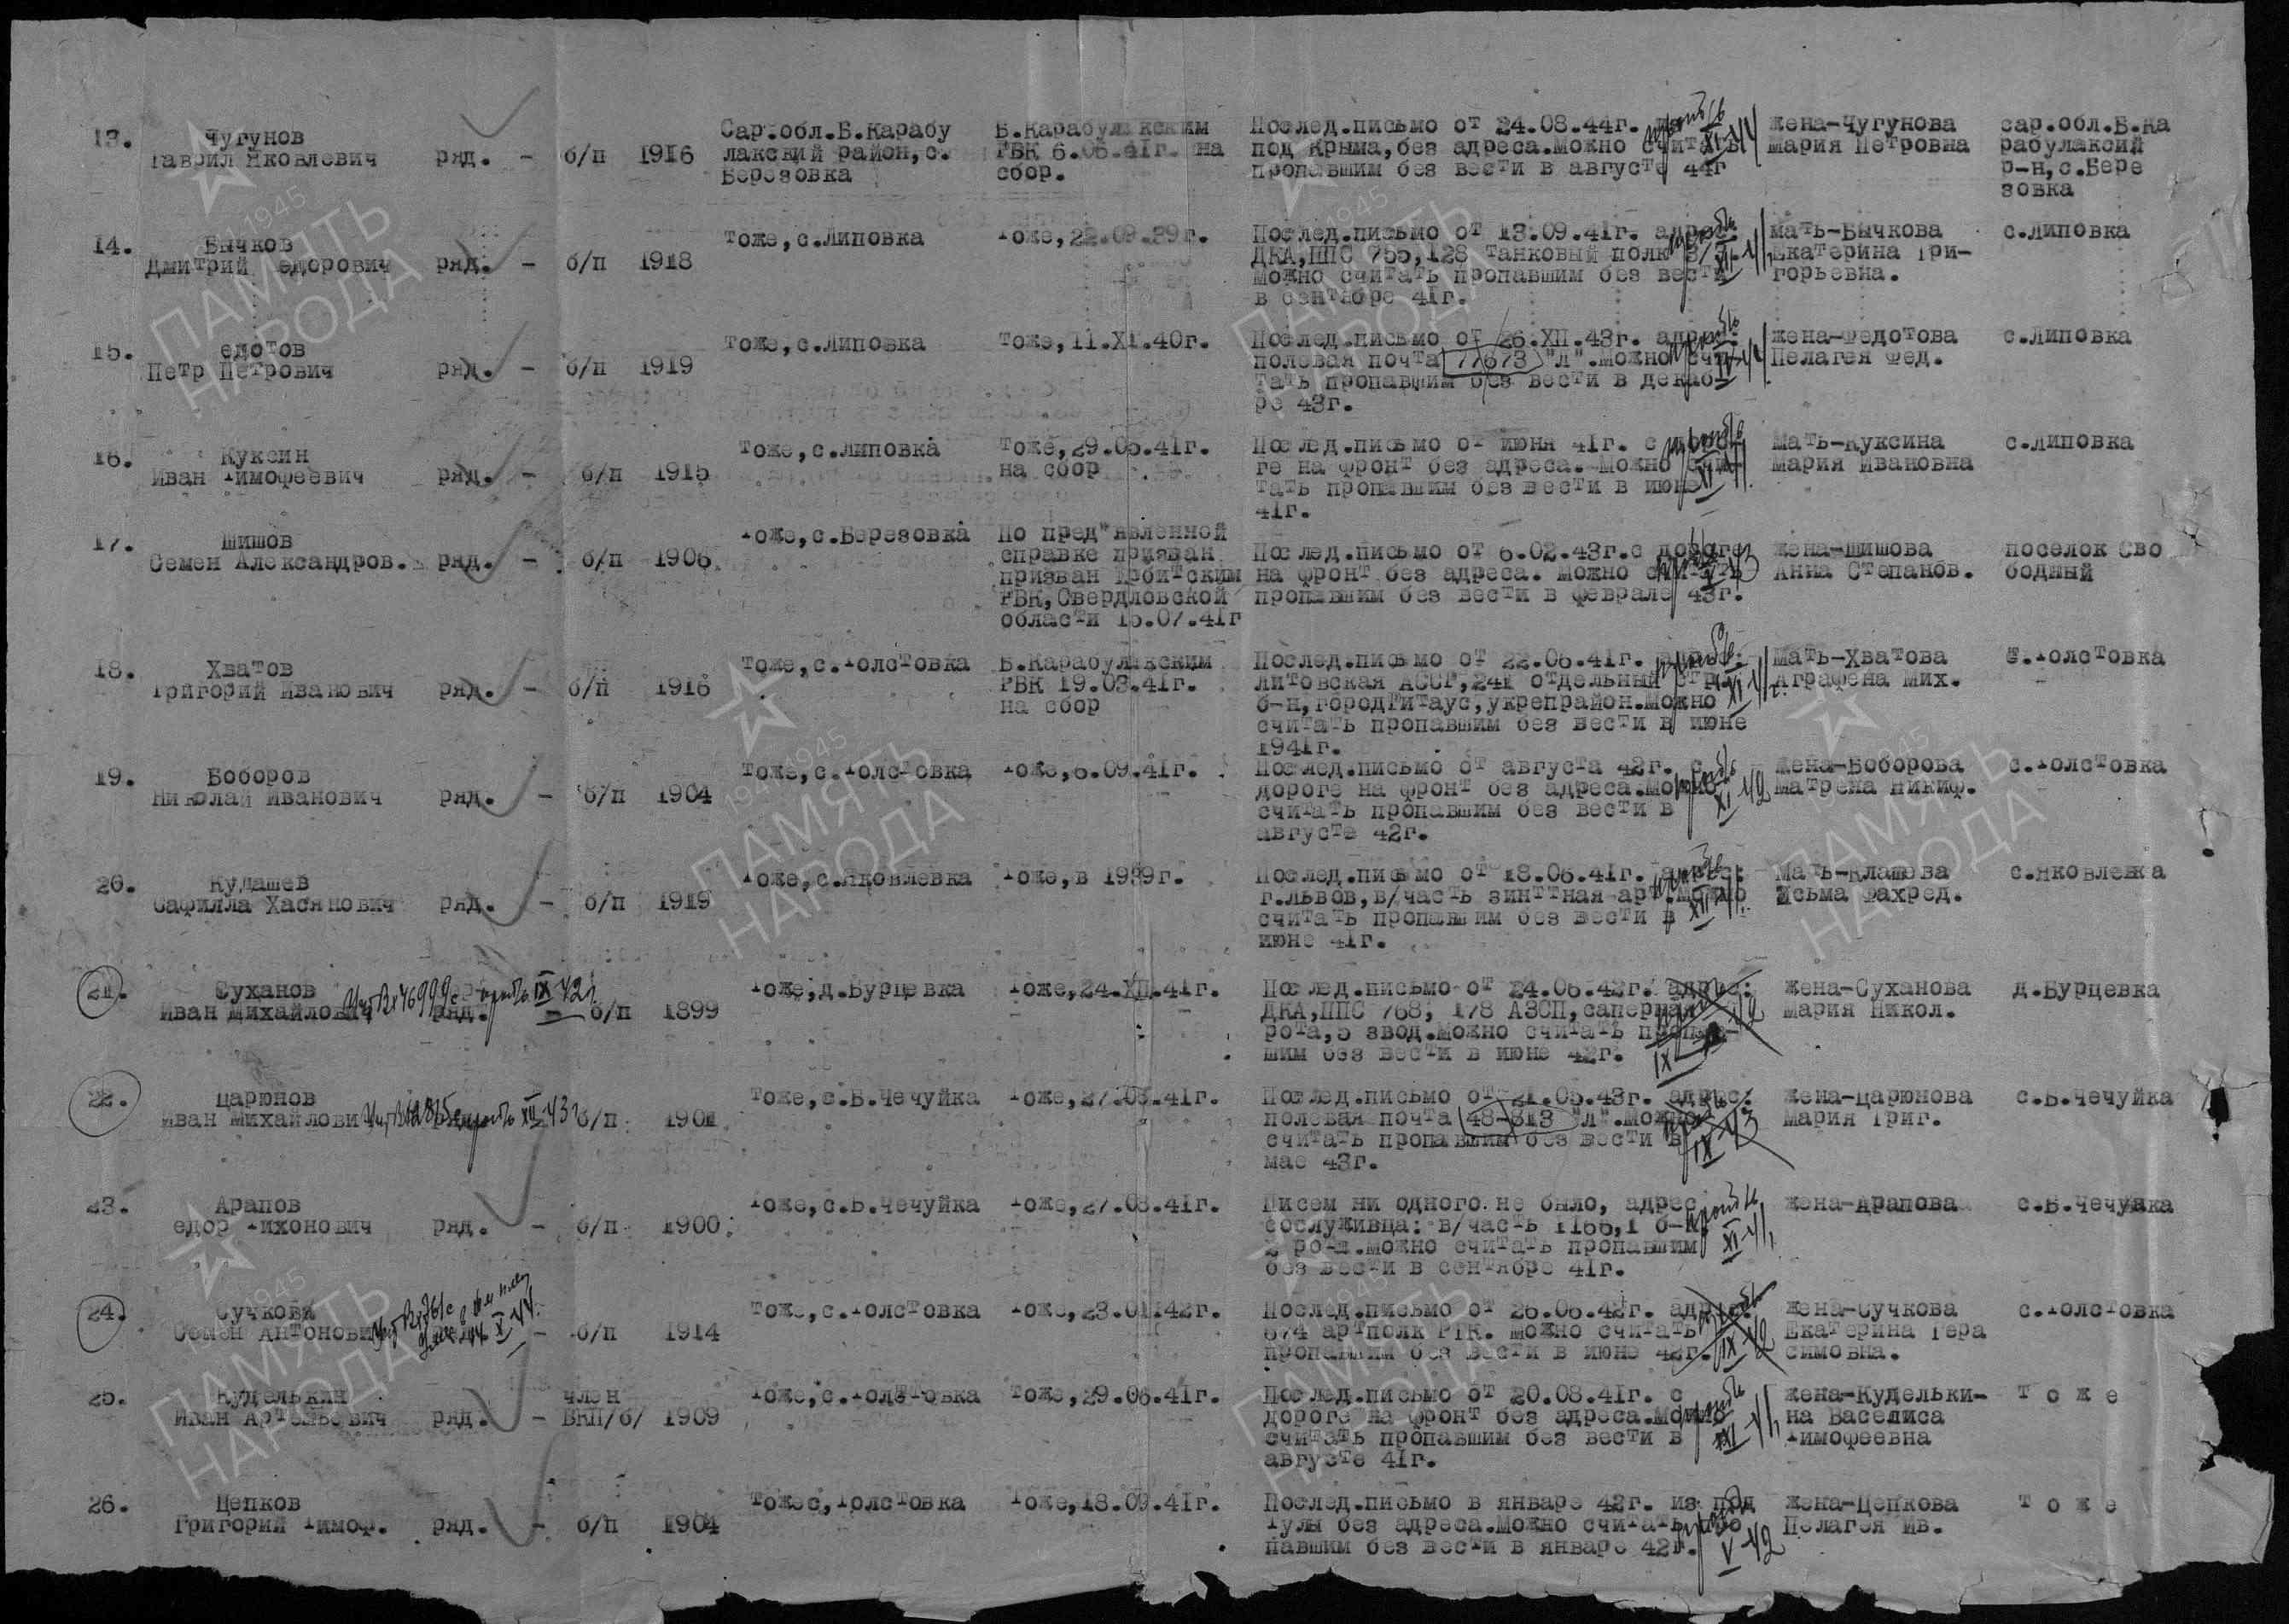 13. Чугунов
Гаврил Яковлевич ряд. - б/п 1916
Сар.обл.Б.Карабу
лакский район,с.
Березовка
Б.Карабулакским
РВК 6.06.41г. на
сбор.
Послед.письмо от 24.08.44г.
под Крыма,без адреса.Можно считать
пропавшим без вести в августе 44г
XI-44
жена-Чугунова
Мария Петровна
сар.обл.Б.Ка
рабулакский
р-н,с.Бере
зовка
14. Бычков
Дмитрий едорович ряд. - б/п 1918
Тоже,с.Липовка
Тоже,22.09.39г.
Послед.письмо от 13.09.41г. адрес:
ДКА,ППС 755,128 танковый полк
Можно считать пропавшим без вести
в сентябре 41г.
мать-Бычкова
Екатерина Гри-
горьевна.
с.Липовка
15. едотов
Петр Петрович ряд. - б/п 1919
Тоже,с.Липовка
Тоже,11.XI.40г.
Послед.письмо от 26.XII.43г. адрес:
полевая почта 77673 "Л".Можно счи
тать пропавшим без вести в декаб
ре 43г.
жена-Федотова
Пелагея Фед.
с.Липовка
16. Куксин
Иван Тимофеевич ряд. - б/п 1915
Тоже,с.Липовка
Тоже,29.05.41г.
на сбор
Послед.письмо от июня 41г. с доро
ге на фронт без адреса. Можно счи
тать пропавшим без вести в июне
41г.
Мать-Куксина
Мария Ивановна
с.Липовка
17. Шишов
Семен Александров. ряд. - б/п 1906
Тоже,с.Березовка
По пред"явленной
справке призван
призван Ирбитским
РВК,Свердловской
области 15.07.41г
Послед.письмо от 6.02.43г.с дороге
на фронт без адреса. Можно считать
пропавшим без вести в феврале 43г.
жена-Шишова
Анна Степанов.
поселок Сво
бодный
18. Хватов
Григорий Иванович ряд. - б/п 1916
Тоже,с.Толстовка
Б.Карабулакским
РВК 19.03.41г.
на сбор
Послед.письмо от 22.06.41г. адрес:
Литовская АССР,241 отдельный стр.
б-н,городГитаус,укрепрайон.Можно
считать пропавшим без вести в июне
1941г.
Мать-Хватова
Аграфена Мих.
с.Толстовка
19. Боборов
Николай Иванович ряд. - б/п 1904
Тоже,с.Толстовка
Тоже,6.09.41г.
Послед.письмо от августа 42г. с
дороге на фронт без адреса.Можно
считать пропавшим без вести в
августе 42г.
XI-42
жена-Боборова
Матрена Никиф.
с.Толстовка
20. Кудашев
Сафилла Хасянович ряд. - б/п 1919
Тоже,с.Яковлевка
Тоже,в 1939г.
Послед.письмо от 18.06.41г. адрес:
г.Львов,в/часть зинттная арт.Можно
считать пропавшим без вести в
июне 41г.
Мать-Клашева
Исьма Фахред.
с.Яковлевка
21. Суханов
Иван Михайлович ряд. - б/п 1899
IX-42г.
Тоже,д.Бурцевка
Тоже,24.XII.41г.
Послед.письмо от 24.06.42г. адрес:
ДКА,ППС 768, 178 АЗСП,саперная
рота,5 звод.Можно считать пропав-
шим без вести в июне 42г.
IX 42
жена-Суханова
Мария Никол.
д.Бурцевка
22. Царюнов
Иван Михайлович б/п 1901
XII-43г
Тоже,с.Б.Чечуйка
Тоже,27.08.41г.
Послед.письмо от 21.05.43г. адрес:
полевая почта 48-813 "Л".Можно
считать пропавшим без вести в
мае 43г.
IX-43
жена-Царюнова
Мария Григ.
с.Б.Чечуйка
23. Арапов
едор Тихонович ряд. - б/п 1900
Тоже,с.Б.Чечуйка
Тоже,27.08.41г.
Писем ни одного не было, адрес
сослуживца: в/часть 1166,1 б-н,
2 рота.Можно считать пропавшим
без вести в сентябре 41г.
XI-41
жена-Арапова
с.Б.Чечуйка
24. Сучков
Семен Антонович - б/п 1914
Тоже,с.Толстовка
Тоже,23.01.42г.
Послед.письмо от 26.06.42г. адрес:
674 артполк РГК. Можно считать
пропавшим без вести в июне 42г.
IX-42
жена-Сучкова
Екатерина Гера
симовна.
с.Толстовка
25. Куделькин
Иван Артемьевич ряд. - член
ВКП/б/ 1909
Тоже,с.Толстовка
Тоже,29.06.41г.
Послед.письмо от 20.08.41г. с
дороге на фронт без адреса.Можно
считать пропавшим без вести в
августе 41г.
жена-Кудельки-
на Васелиса
Тимофеевна
Т о ж е
26. Цепков
Григорий Тимоф. ряд. - б/п 1904
Тожес,Толстовка
Тоже,18.09.41г.
Послед.письмо в январе 42г. из под
Тулы без адреса.Можно считать про
павшим без вести в январе 42г.
V-42
жена-Цепкова
Пелагея Ив.
Т о ж е
1941 1945
ПАМЯТЬ
НАРОДА